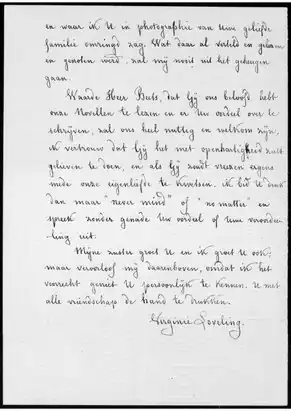 en waar ik U in photographie van Uwe geliefde
familie omringd zag. Wat daar al verteld en gekeven
en genoten werd, zal mij nooit uit het geheugen
gaan.
Waarde Heer Buls, dat Gij ons beloofd hebt
onze Novellen te lezen en er Uw oordeel over te
schrijven, zal ons heel nuttig en welkom zijn,
ik vertrouw dat Gij het met openhartigheid zult
gelieven te doen, en als Gij zoudt vreezen ergens
mede onze eigenliefde te kwetsen. ik bid U denk
dan maar "never mind" of 'no matter' en
spreek zonder genade Uw oordeel of Uwe veroordee-
ling uit.
Mijne zuster groet U en ik groet U ook,
maar veroorloof mij daarenboven, omdat ik het
voorrecht geniet U persoonlijk te kennen. U met
alle vriendschap de hand te drukken.
Virginie Loveling.